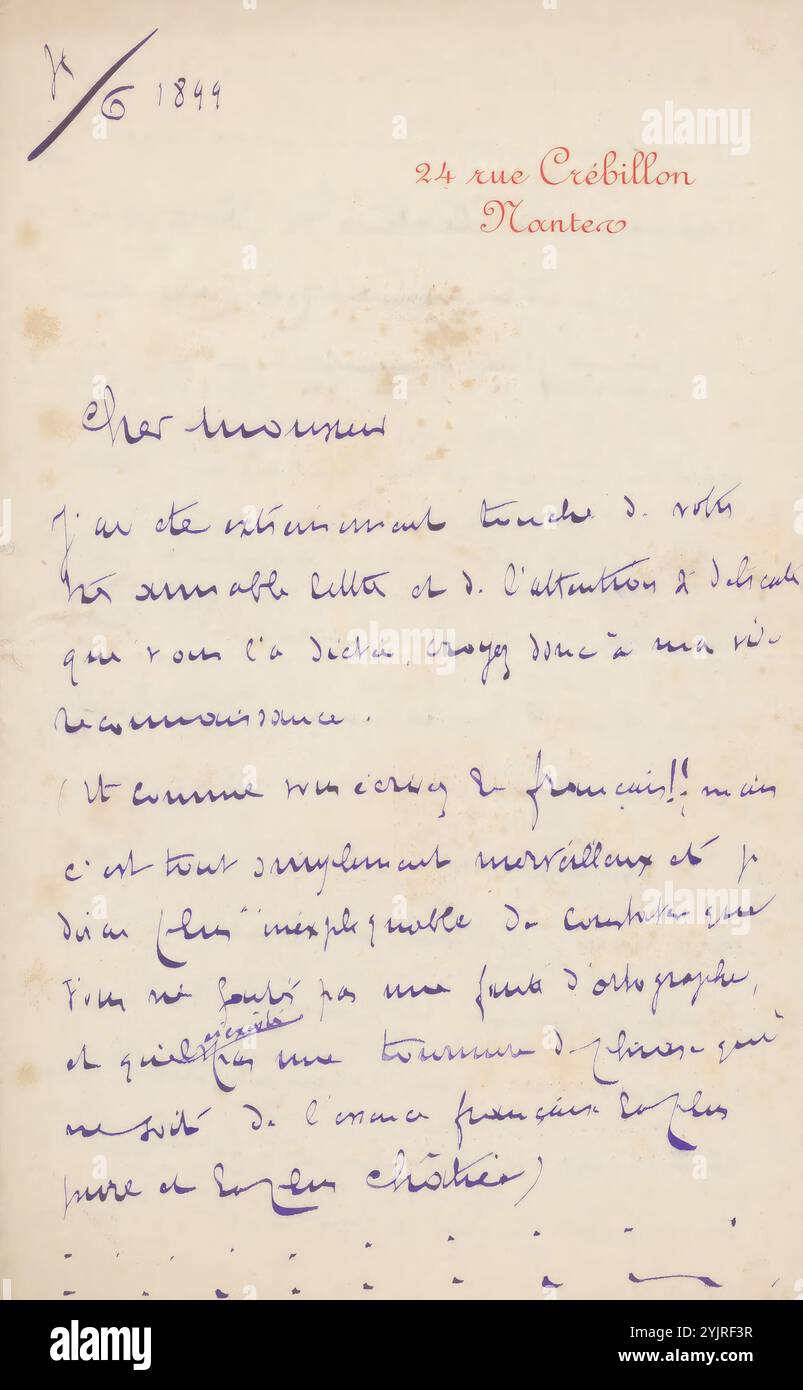 /6 1899
24 rue Crébillon
Nantes
Cher monsieur
J'ai été extrêmement touché de votre
très aimable lettre et de l'attention délicate
que vous l'a dictée, croyez donc à ma vive
reconnaissance.
(Et comme vous écrivez le français!! mais
c'est tout simplement merveilleux et je
dirai plus inexpliquable de constater que
vous ne faites pas une faute d'ortographe,
et qu'il n'existe pas une tournure de phrase qui
ne soit de l'essence française la plus
pure et la plus châtiée)
alamy
Image ID: 2YJRF3R
www.alamy.com